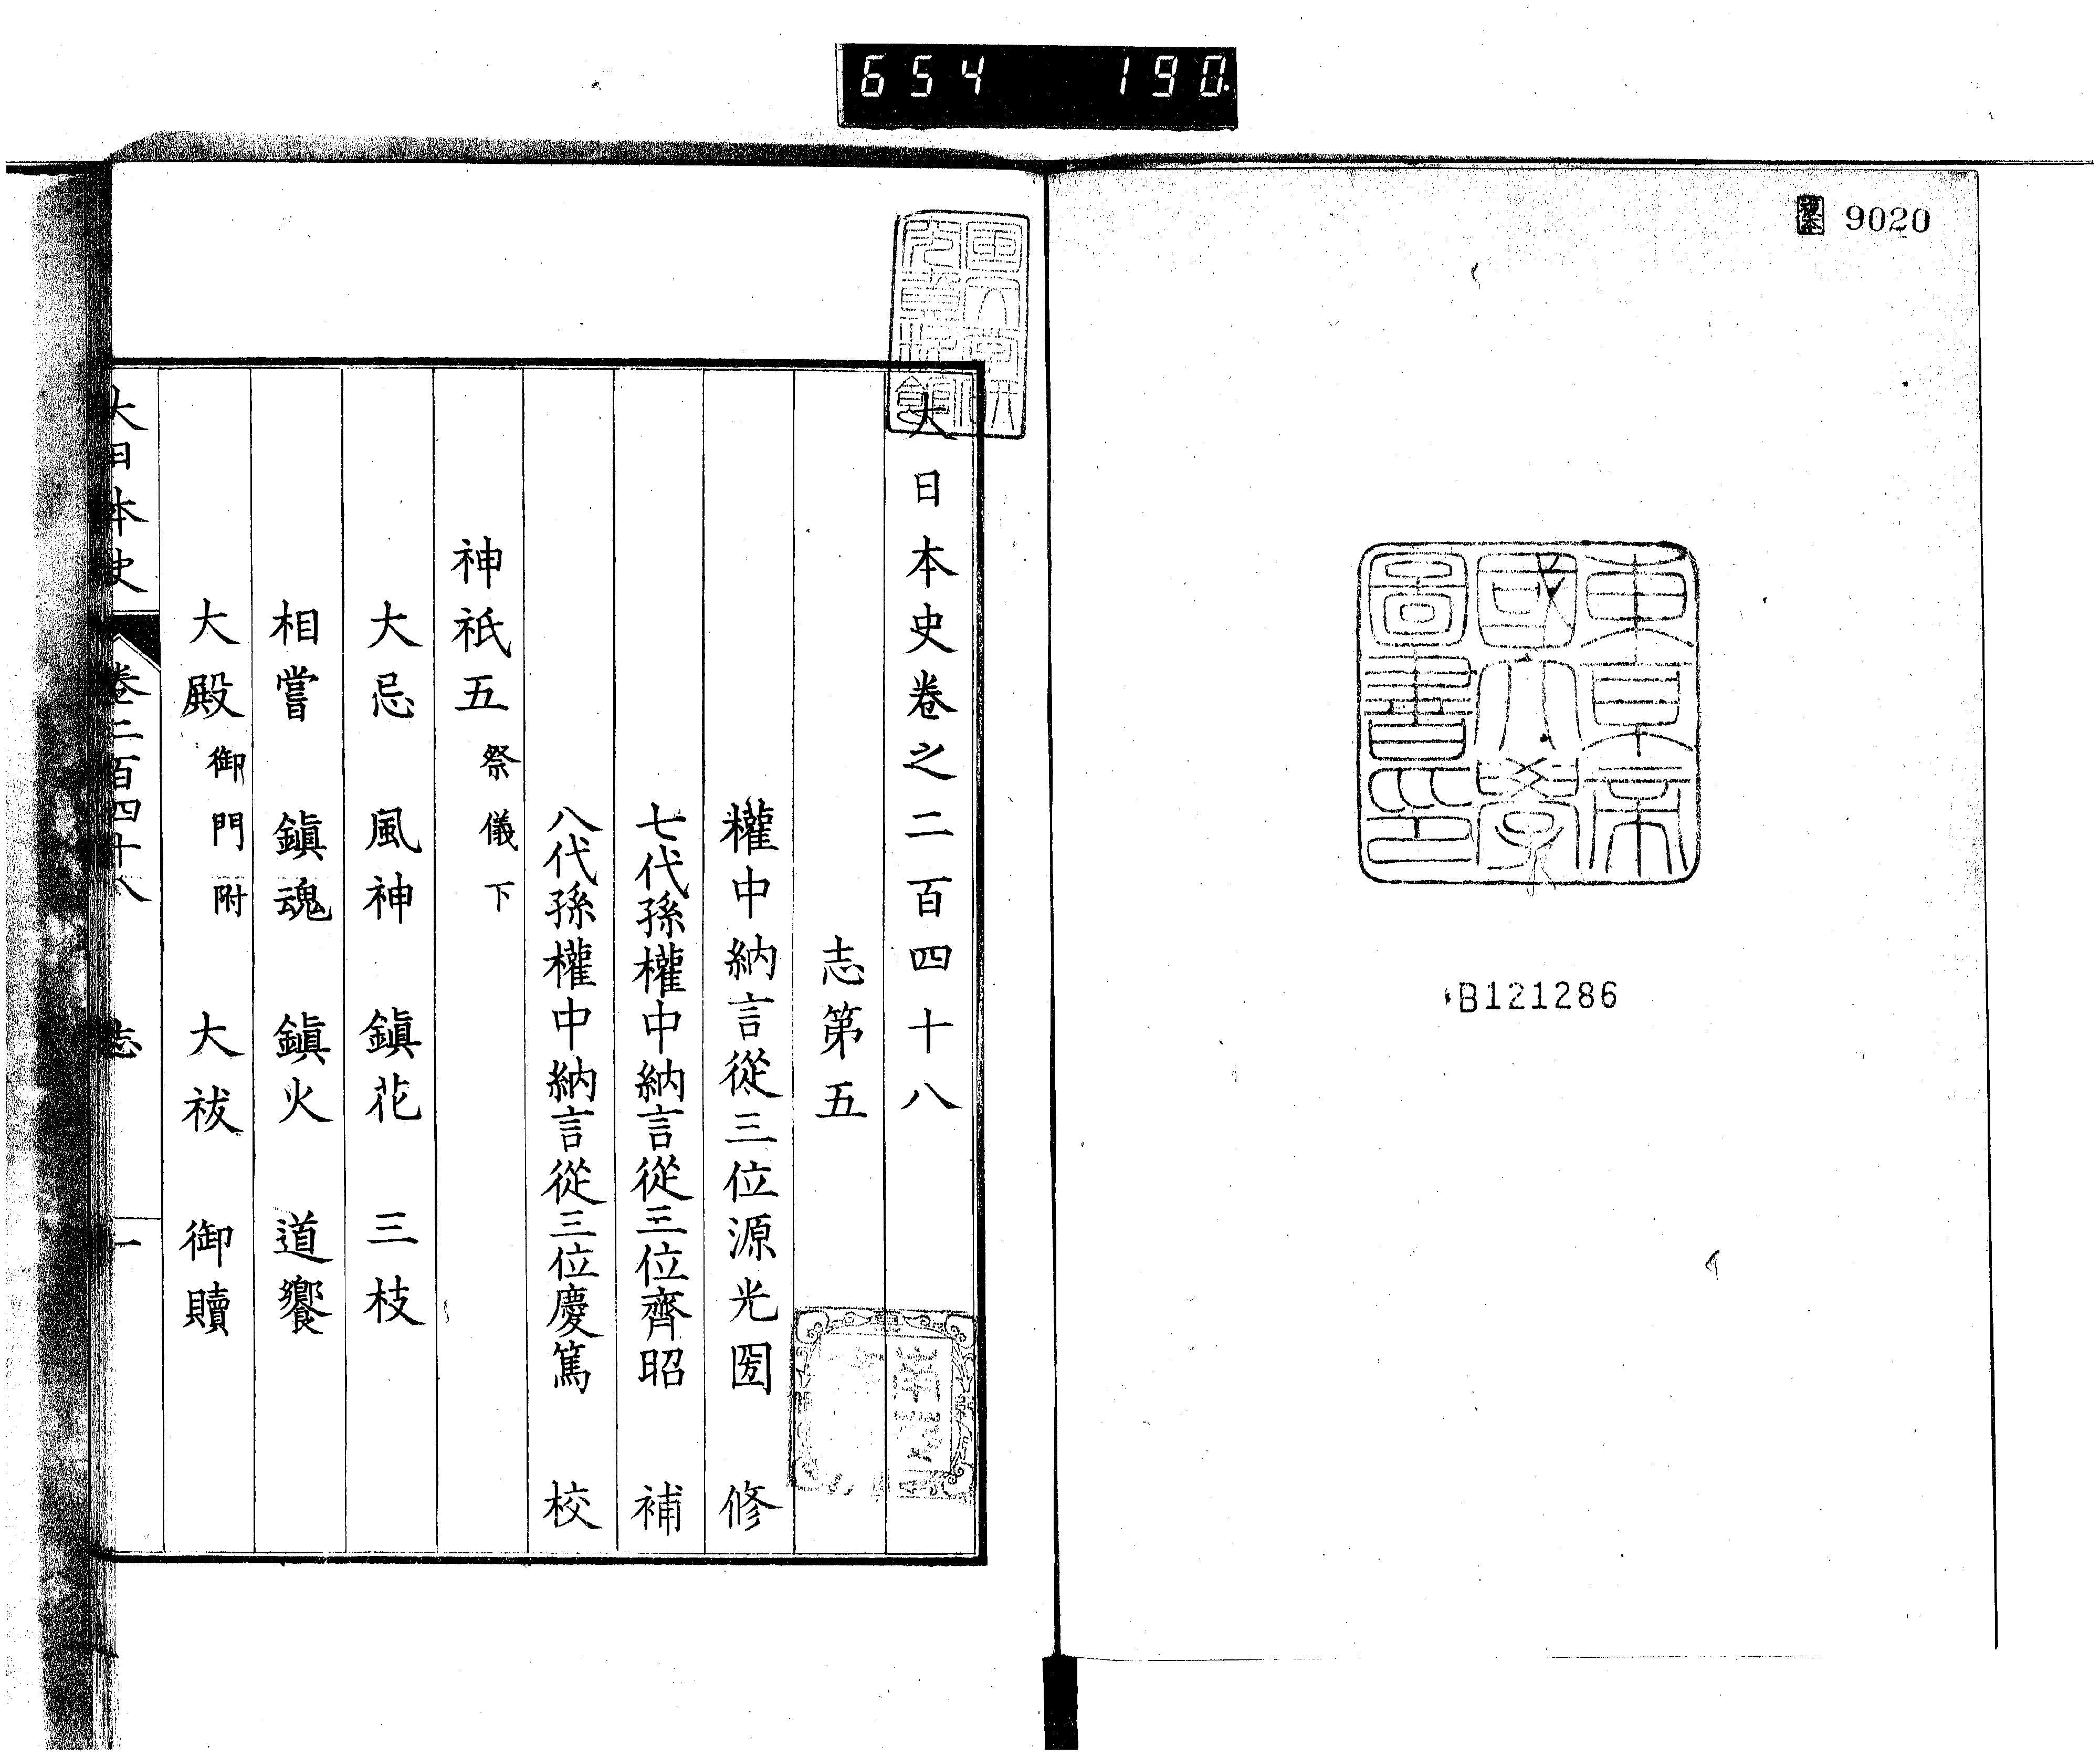 654 190
9020
東京帝
國大學
圖書印
B121286
大日本史卷之二百四十八
志第五
權中納言從三位源光圀 修
七代孫權中納言從三位齊昭 補
八代孫權中納言從三位慶篤 校
神祇五 祭儀下
大忌 風神 鎮花 三枝
相嘗 鎮魂 鎮火 道饗
大殿 御門附 大祓 御贖
大日本史 卷二百四十八 志 一